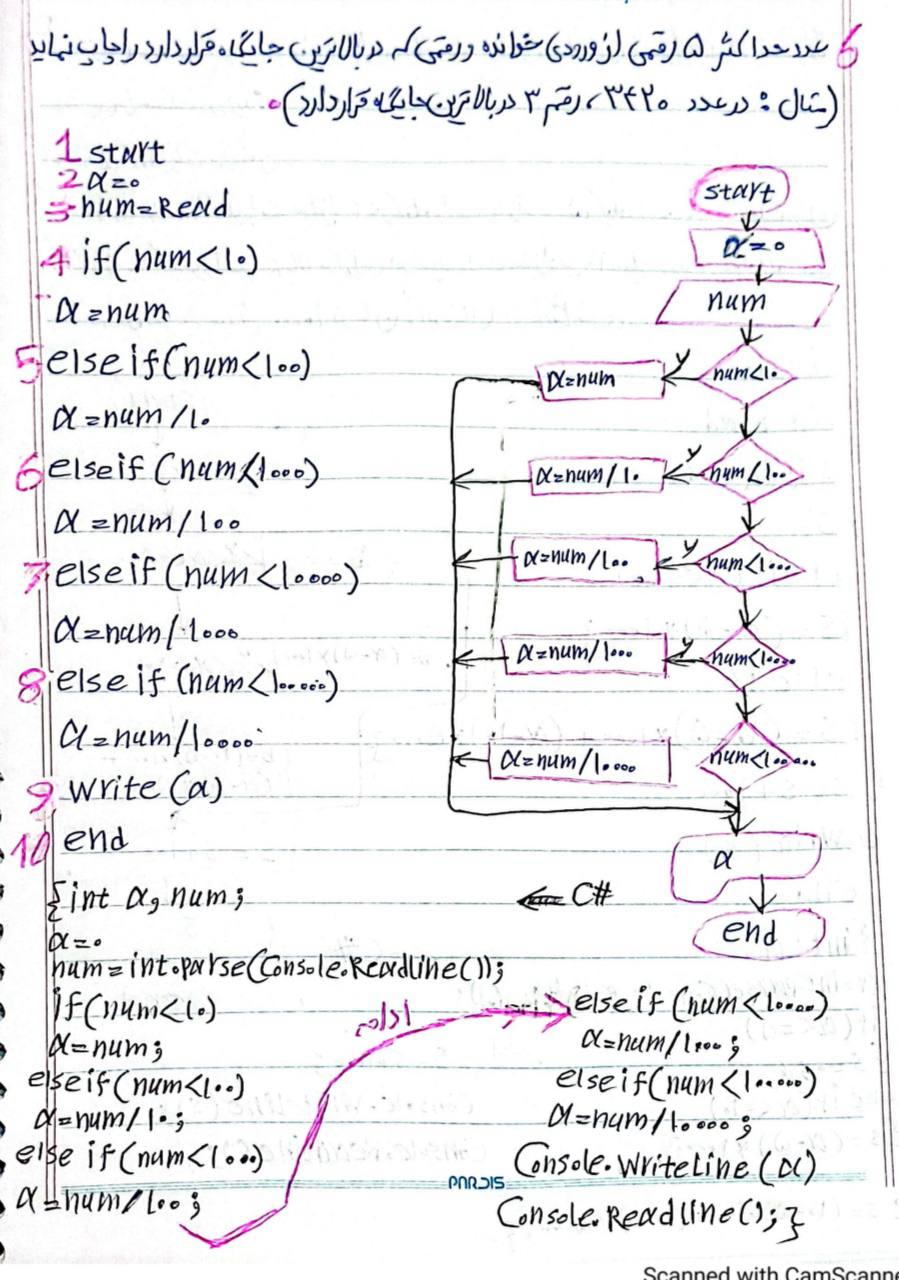 6 عدد حداکثر ۵ رقمی از ورودی خوانده و رقمی که در بالاترین جایگاه قرار دارد را چاپ نماید
(مثال : در عدد ۳۴۲۰، رقم ۳ در بالاترین جایگاه قرار دارد).
1 start
2 α=0
3 num=Read
4 if(num<10)
α=num
5 else if(num<100)
α=num/10
6 else if (num<1000)
α=num/100
7 else if (num<10000)
α=num/1000
8 else if (num<100000)
α=num/10000
9 write (α)
10 end
start
α=0
num
num<10
y
α=num
num<100
y
α=num/10
num<1000
y
α=num/100
num<10000
y
α=num/1000
num<100000
α=num/10000
α
end
C#
{int α, num;
α=0
num=int.parse(Console.Readline());
if(num<10)
α=num;
else if(num<100)
α=num/10;
else if (num<1000)
α=num/100;
ادامه
else if (num<10000)
α=num/1000;
else if(num<100000)
α=num/10000;
Console.WriteLine(α)
Console.Readline();}
PARDIS
Scanned with CamScanne